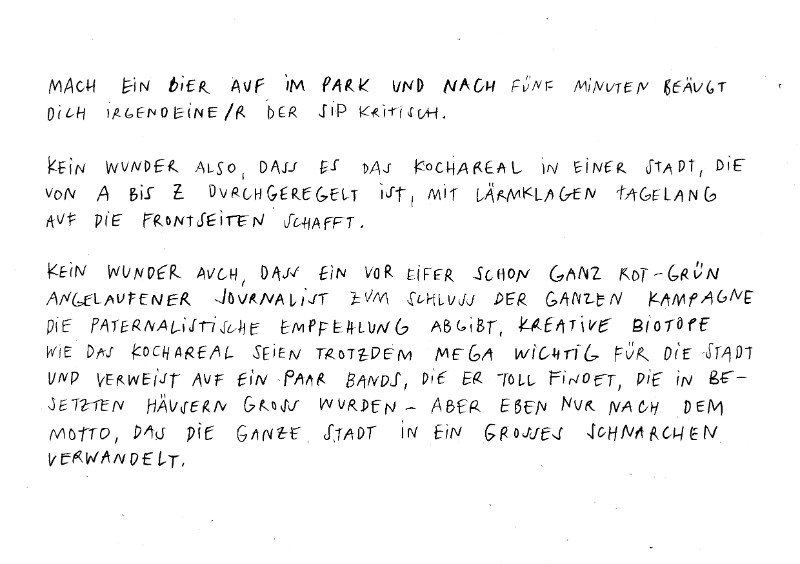 MACH EIN BIER AUF IM PARK UND NACH FÜNF MINUTEN BEÄUGT
DICH IRGENDEINE/R DER SIP KRITISCH.
KEIN WUNDER ALSO, DASS ES DAS KOCHAREAL IN EINER STADT, DIE
VON A BIS Z DURCHGEREGELT IST, MIT LÄRMKLAGEN TAGELANG
AUF DIE FRONTSEITEN SCHAFFT.
KEIN WUNDER AUCH, DASS EIN VOR EIFER SCHON GANZ ROT-GRÜN
ANGELAUFENER JOURNALIST ZUM SCHLUSS DER GANZEN KAMPAGNE
DIE PATERNALISTISCHE EMPFEHLUNG ABGIBT, KREATIVE BIOTOPE
WIE DAS KOCHAREAL SEIEN TROTZDEM MEGA WICHTIG FÜR DIE STADT
UND VERWEIST AUF EIN PAAR BANDS, DIE ER TOLL FINDET, DIE IN BE-
SETZTEN HÄUSERN GROSS WURDEN - ABER EBEN NUR NACH DEM
MOTTO, DAS DIE GANZE STADT IN EIN GROSSES SCHNARCHEN
VERWANDELT.